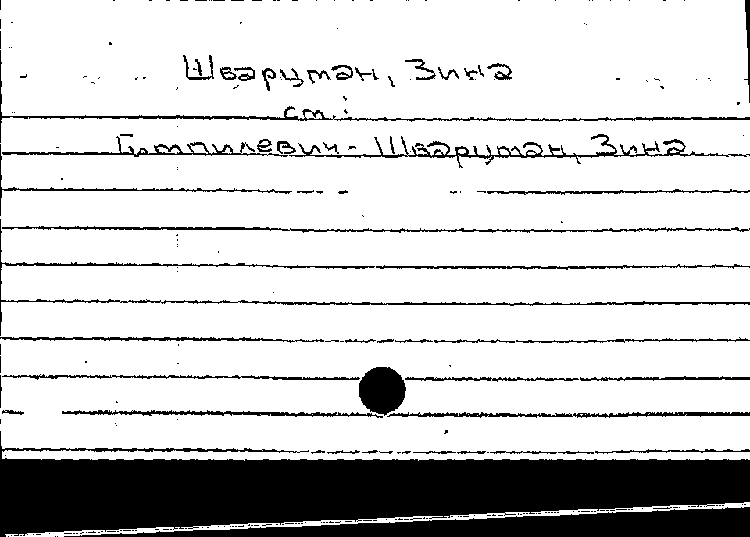 Шварцман, Зина
см.:
Гитпилевич - Шварцман, Зина.